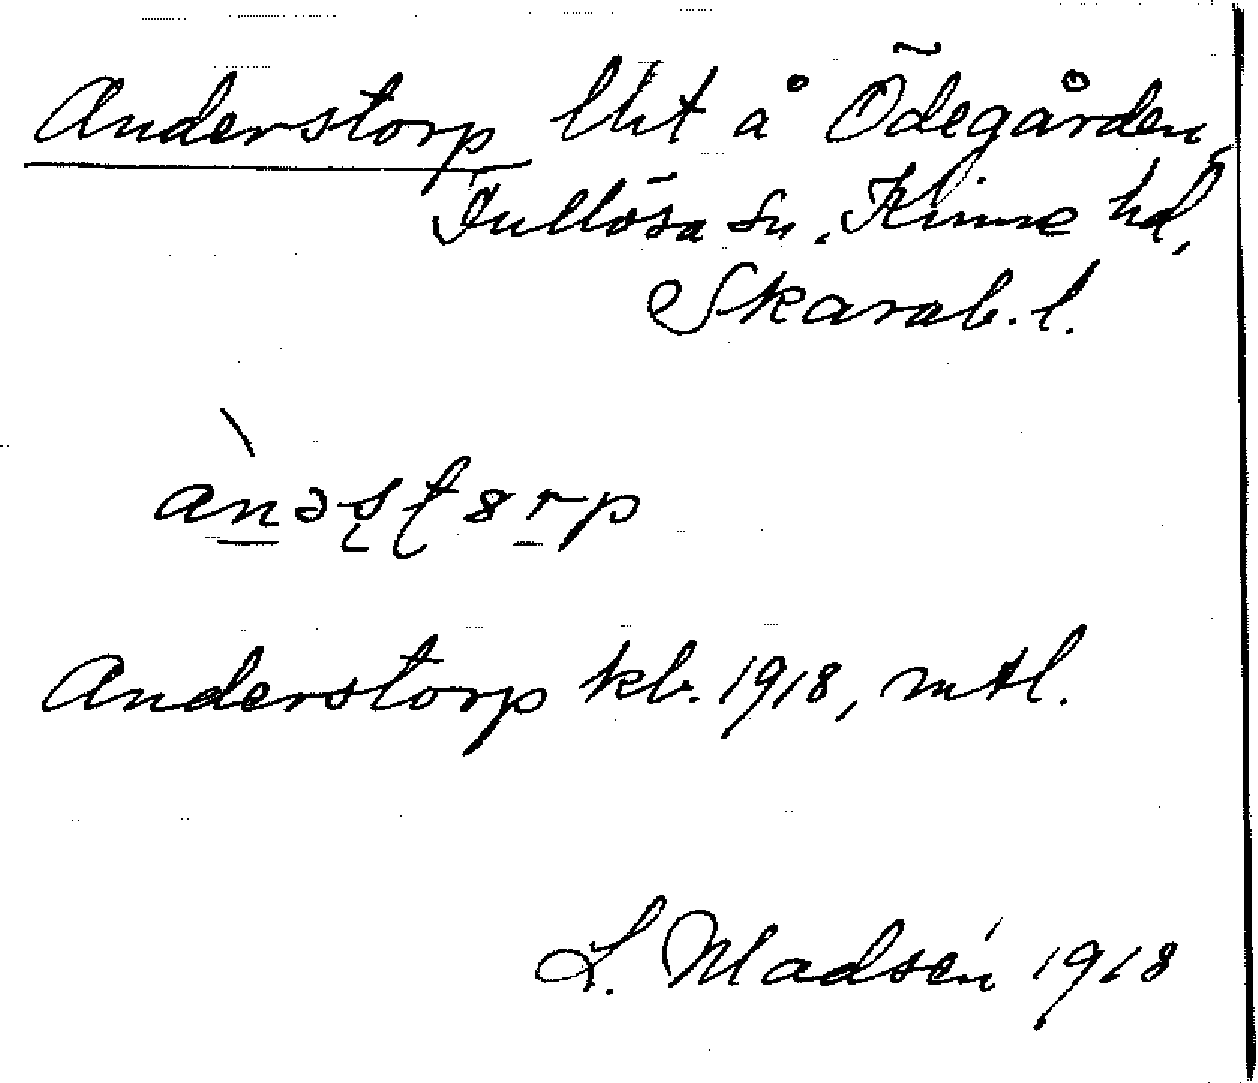 Anderstorp lht å Ödegården,
Fullösa sn, Kinne hd,
Skarab. l.
ànəstɷrp
Anderstorp kb. 1918, mtl.
L. Madsén 1918